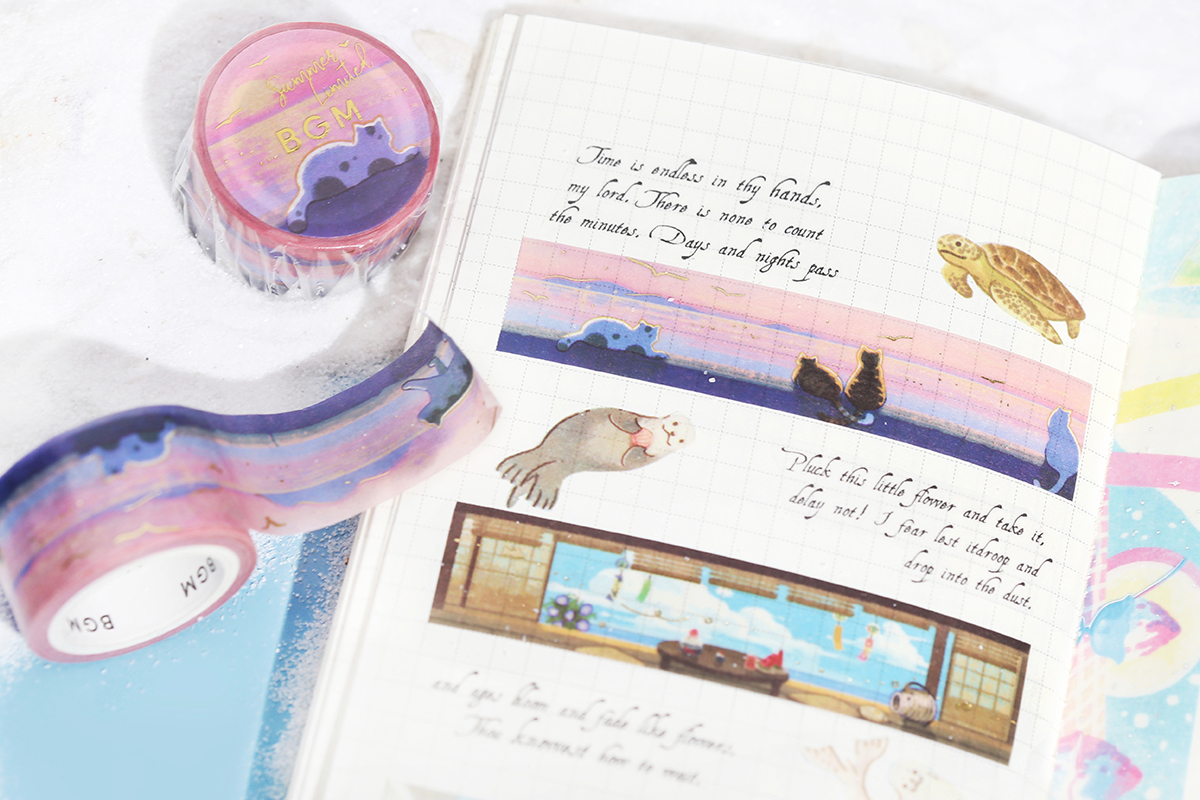 Summer
Limited
BGM
Time is endless in thy hands,
my lord. There is none to count
the minutes. Days and nights pass
Pluck this little flower and take it,
delay not! I fear lest itdroop and
drop into the dust.
BGM
BGM
and ages bloom and fade like flowers.
Thou knowest how to wait.